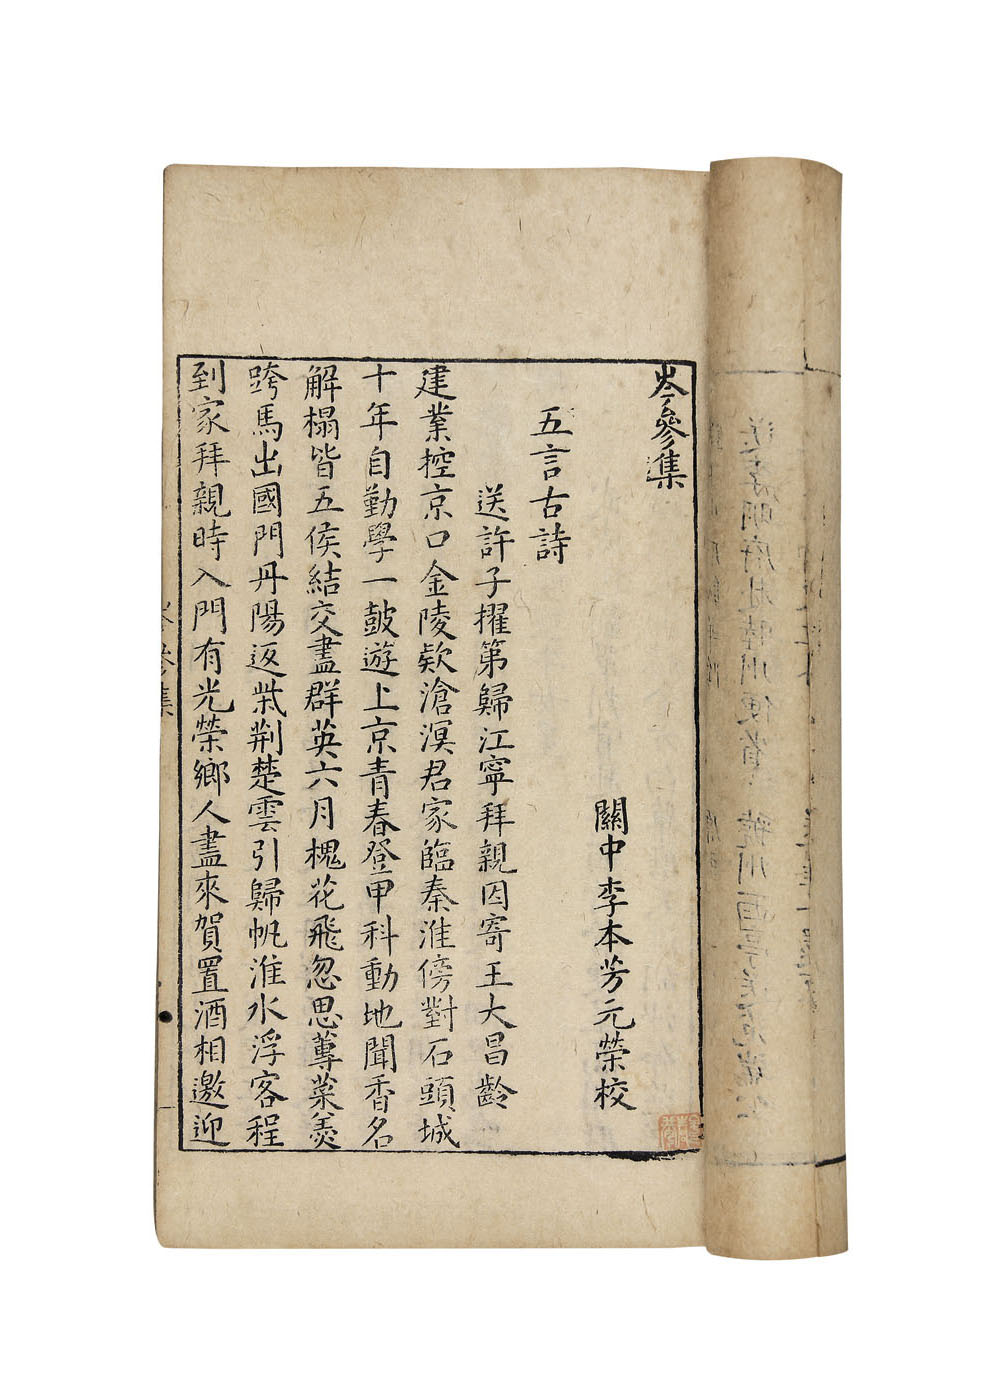 岑參集
關中李本芳元榮校
五言古詩
送許子擢第歸江寧拜親因寄王大昌齡
建業控京口金陵欵滄溟君家臨秦淮傍對石頭城
十年自勤學一鼓遊上京青春登甲科動地聞香名
解榻皆五侯結交盡群英六月槐花飛忽思蓴菜羹
跨馬出國門丹陽返柴荆楚雲引歸帆淮水浮客程
到家拜親時入門有光榮鄉人盡來賀置酒相邀迎
岑參集